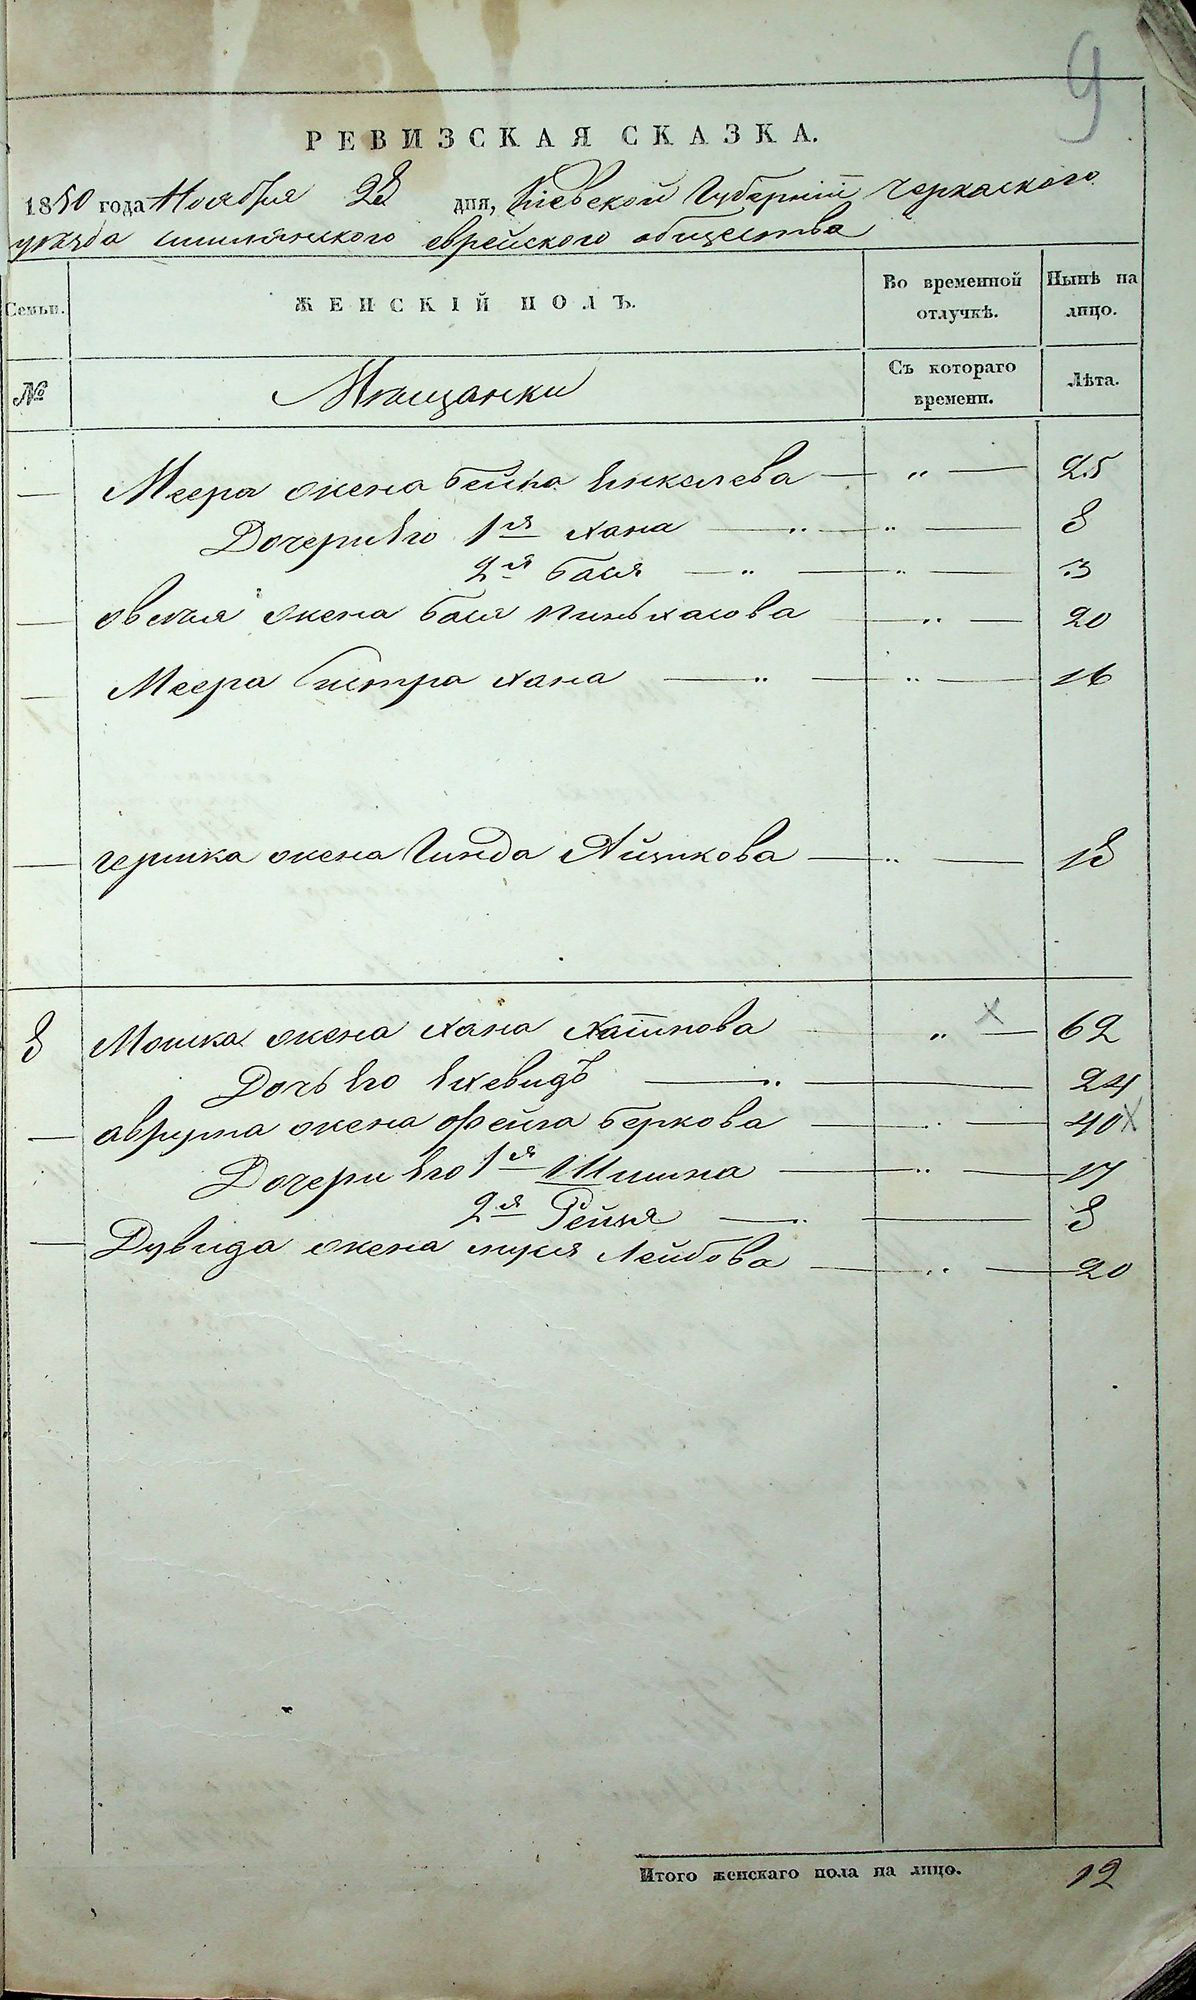 9
РЕВИЗСКАЯ СКАЗКА.
1850 года Ноября 28 дня, Кіевской Губерніи Черкаского
уѣзда смилянского еврейского общества
Семьи. ЖЕНСКІЙ ПОЛЪ. Во временной отлучкѣ. Нынѣ на лицо.
№ Мещанки Съ котораго времени. Лѣта.
— Меера жена Бейла — " — 25
Дочери Его 1я Хана — " — " — 8
2я Бася — " — " — 3
— овсѣя жена Бася Пиньхасова — " — 20
— Меера Систра Хана — " — " — 16
— гершка жена Гинда Айзикова — " — 18
8 Мошка жена Хана " — 62
Дочь Его Ехевидъ — " — 24
— аврума жена Фейга Беркова — " — 40
Дочери Его 1я — " — 17
2я Рейзя — " — 8
— Дувида жена Лейбова — " — 20
Итого женскаго пола на лицо. 12